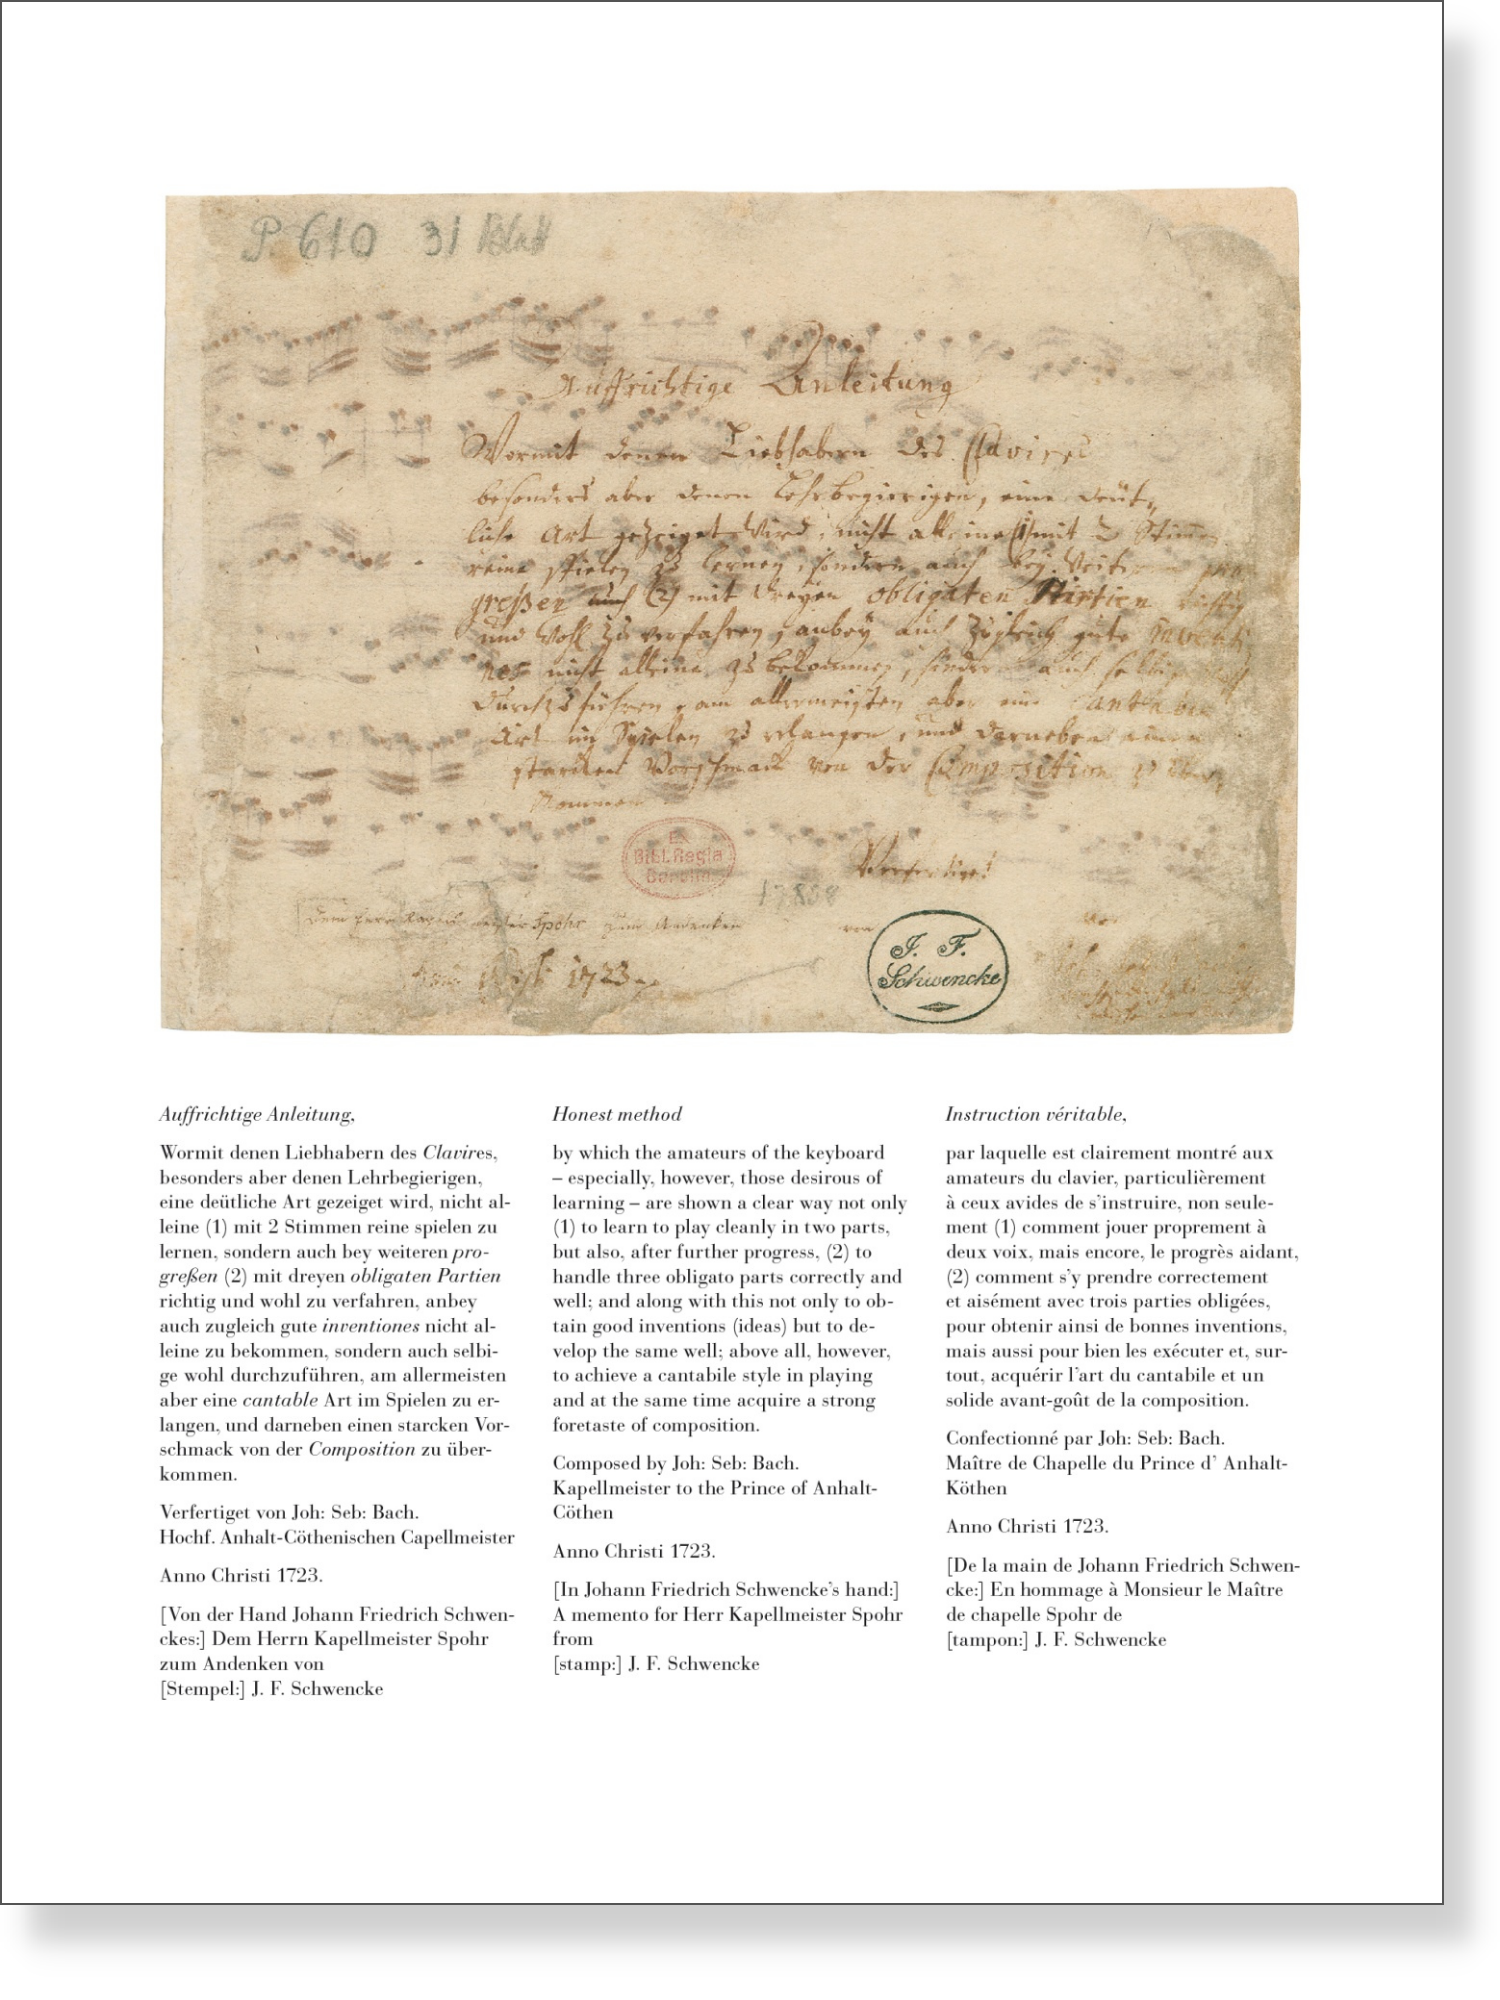 P 610 31 Blatt
Auffrichtige Anleitung
Wormit denen Liebhabern des Clavires
besonders aber denen Lehrbegierigen, eine deüt-
liche Art gezeiget wird, nicht alleine (1) mit 2 Stimen
reine spielen zu lernen, sondern auch bey weiteren pro-
greßen auch (2) mit dreyen obligaten Partien richtig
und wohl zu verfahren, anbey auch zugleich gute inventio-
nes nicht alleine zu bekommen, sondern auch selbige wohl
durchzuführen, am allermeisten aber eine cantable
Art im Spielen zu erlangen, und darneben einen
starcken Vorschmack von der Composition zu über-
kommen.
Ex
Bibl. Regia
Berolin.
Verfertiget
17838
Dem Herrn Kapellmeister Spohr zum Andenken von
J. F.
Schwencke
Anno Christi 1723.
Auffrichtige Anleitung,
Wormit denen Liebhabern des Clavires,
besonders aber denen Lehrbegierigen,
eine deütliche Art gezeiget wird, nicht al-
leine (1) mit 2 Stimmen reine spielen zu
lernen, sondern auch bey weiteren pro-
greßen (2) mit dreyen obligaten Partien
richtig und wohl zu verfahren, anbey
auch zugleich gute inventiones nicht al-
leine zu bekommen, sondern auch selbi-
ge wohl durchzuführen, am allermeisten
aber eine cantable Art im Spielen zu er-
langen, und darneben einen starcken Vor-
schmack von der Composition zu über-
kommen.
Verfertiget von Joh: Seb: Bach.
Hochf. Anhalt-Cöthenischen Capellmeister
Anno Christi 1723.
[Von der Hand Johann Friedrich Schwen-
ckes:] Dem Herrn Kapellmeister Spohr
zum Andenken von
[Stempel:] J. F. Schwencke
Honest method
by which the amateurs of the keyboard
– especially, however, those desirous of
learning – are shown a clear way not only
(1) to learn to play cleanly in two parts,
but also, after further progress, (2) to
handle three obligato parts correctly and
well; and along with this not only to ob-
tain good inventions (ideas) but to de-
velop the same well; above all, however,
to achieve a cantabile style in playing
and at the same time acquire a strong
foretaste of composition.
Composed by Joh: Seb: Bach.
Kapellmeister to the Prince of Anhalt-
Cöthen
Anno Christi 1723.
[In Johann Friedrich Schwencke's hand:]
A memento for Herr Kapellmeister Spohr
from
[stamp:] J. F. Schwencke
Instruction véritable,
par laquelle est clairement montré aux
amateurs du clavier, particulièrement
à ceux avides de s'instruire, non seule-
ment (1) comment jouer proprement à
deux voix, mais encore, le progrès aidant,
(2) comment s'y prendre correctement
et aisément avec trois parties obligées,
pour obtenir ainsi de bonnes inventions,
mais aussi pour bien les exécuter et, sur-
tout, acquérir l'art du cantabile et un
solide avant-goût de la composition.
Confectionné par Joh: Seb: Bach.
Maître de Chapelle du Prince d' Anhalt-
Köthen
Anno Christi 1723.
[De la main de Johann Friedrich Schwen-
cke:] En hommage à Monsieur le Maître
de chapelle Spohr de
[tampon:] J. F. Schwencke